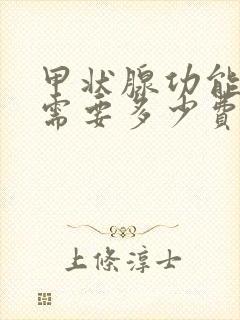 甲状腺功能
需要多少費
上條淳士